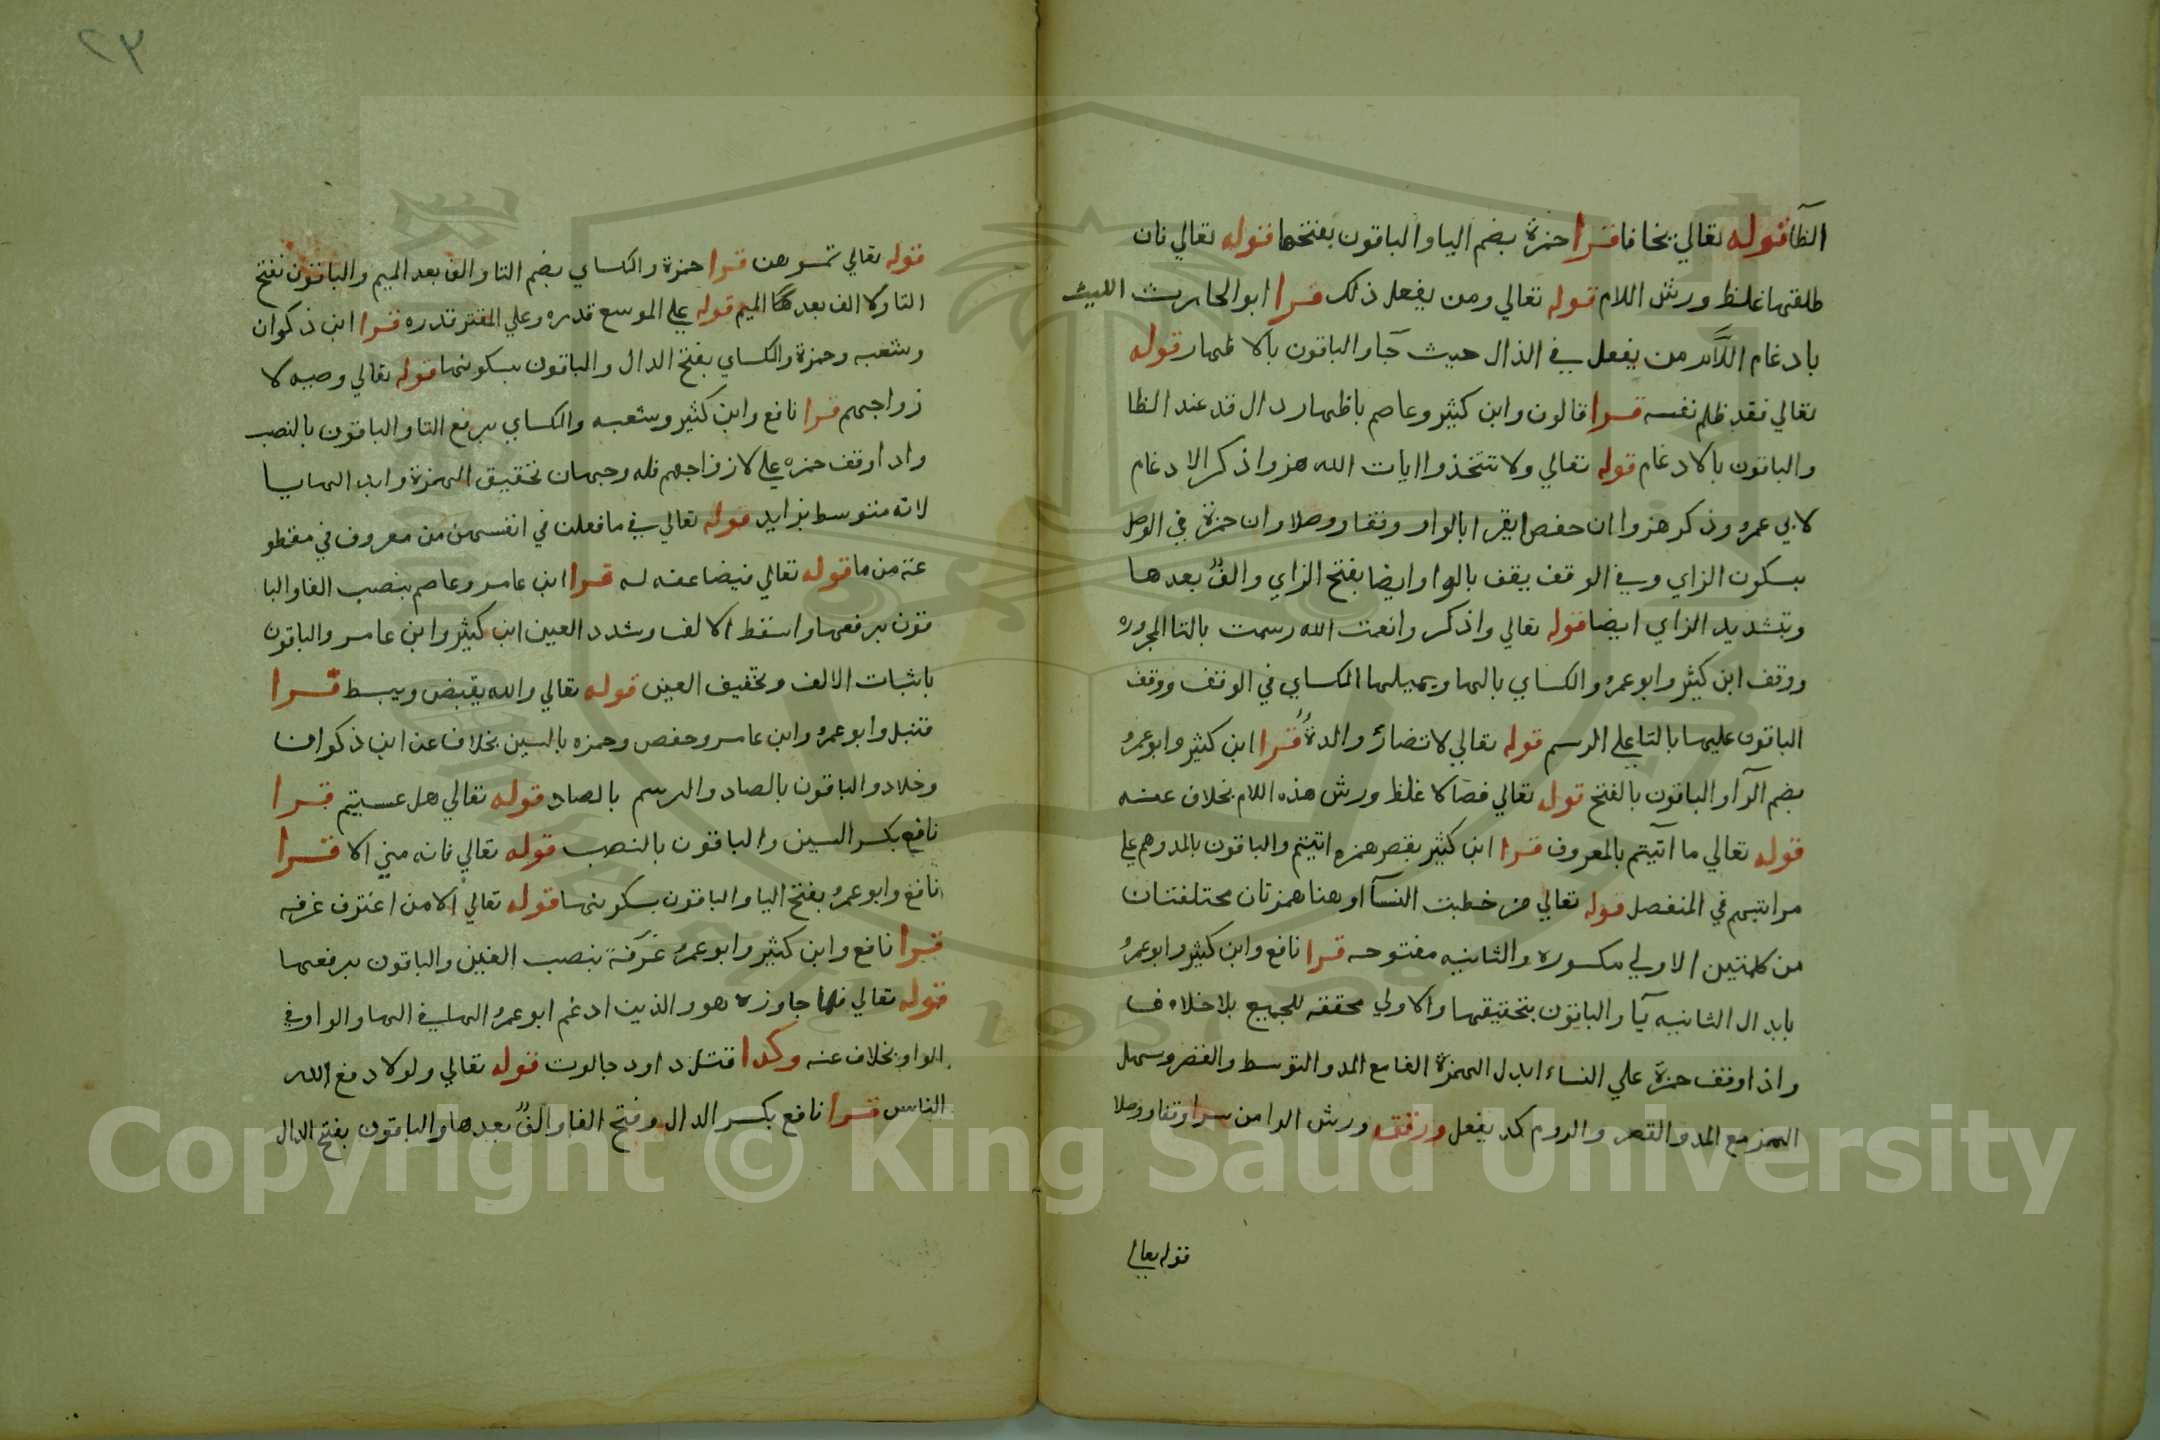 الظا قوله تعالي يخافا قرا حمزة بضم اليا والباقون بفتحها قوله تعالي فان
طلقتها غلظ ورش اللام قوله تعالي ومن يفعل ذلك قرا ابو الحارث الليث
بادغام اللام من يفعل في الذال حيث جا والباقون بالاظهار قوله
تعالي فقد ظلم نفسه قرا قالون وابن كثير وعاصم باظهار دال قد عند الظا
والباقون بالادغام قوله تعالي ولا تتخذوا ايات الله هزوا ذكر الادغام
لابي عمرو وذكر هزوا ان حفص يقرا بالواو وقفا ووصلا وان حمزة في الوصل
بسكون الزاي وفي الوقف يقف بالواو ايضا بفتح الزاي والف بعدها
وبتشديد الزاي ايضا قوله تعالي واذكروا نعمت الله رسمت بالتا المجروره
ووقف ابن كثير وابو عمرو والكساي بالها ويميلها الكساي في الوقف ووقف
الباقون عليها بالتا علي الرسم قوله تعالي لا تضار والدة قرا ابن كثير وابو عمرو
بضم الرا والباقون بالفتح قوله تعالي فصالا غلظ ورش هذه اللام بخلاف عنه
قوله تعالي ما آتيتم بالمعروف قرا ابن كثير بقصر همزه اتيتم والباقون بالمد وهم علي
مراتبهم في المنفصل قوله تعالي من خطبت النسآ او هنا همزتان مختلفتان
من كلمتين الاولي مكسوره والثانيه مفتوحه قرا نافع وابن كثير وابو عمرو
بابدال الثانيه يآ والباقون بتحقيقها والاولي محققه للجميع بلا خلاف
واذا وقف حمزة علي النساء ابدل الهمزة الفا مع المد والتوسط والقصر وسهل
الهمز مع المد والقصر والروم كد يفعل ورققه ورش الرا من سرا وقفا ووصلا
قوله تعالي
٢٣
قوله تعالي تمسوهن قرا حمزة والكساي بضم التا والف بعد الميم والباقون بفتح
التا ولا الف بعد الميم قوله علي الموسع قدره وعلي المقتر قدره قرا ابن ذكوان
وشعبه وحمزة والكساي بفتح الدال والباقون بسكونها قوله تعالي وصيه لا
زواجهم قرا نافع وابن كثير وشعبه والكساي برفع التا والباقون بالنصب
واذا وقف حمزه علي لازواجهم فله وجهان تحقيق الهمزة وابدالها يا
لانه متوسط بزايد قوله تعالي في ما فعلن في انفسهن من معروف في مقطو
عة من ما قوله تعالي فيضاعفه له قرا ابن عامر وعاصم بنصب الفا والبا
قون برفعها واسقط الالف وشدد العين ابن كثير وابن عامر والباقون
باثبات الالف وتخفيف العين قوله تعالي والله يقبض ويبسط قرا
قنبل وابو عمرو وابن عامر وحفص وحمزه بالسين بخلاف عن ابن ذكوان
وخلاد والباقون بالصاد والرسم بالصاد قوله تعالي هل عسيتم قرا
نافع بكسر السين والباقون بالنصب قوله تعالي فانه مني الا قرا
نافع وابو عمرو بفتح اليا والباقون بسكونها قوله تعالي الا من اغترف غرفه
قرا نافع وابن كثير وابو عمرو غرفة بنصب الغين والباقون برفعها
قوله تعالي فلما جاوزه هو والذين ادغم ابو عمرو الها في الها والواو في
الواو بخلاف عنه وكذا قتل داود جالوت قوله تعالي ولولا دفع الله
الناس قرا نافع بكسر الدال وفتح الفا والف بعدها والباقون بفتح الدال
Copyright © King Saud University
1957